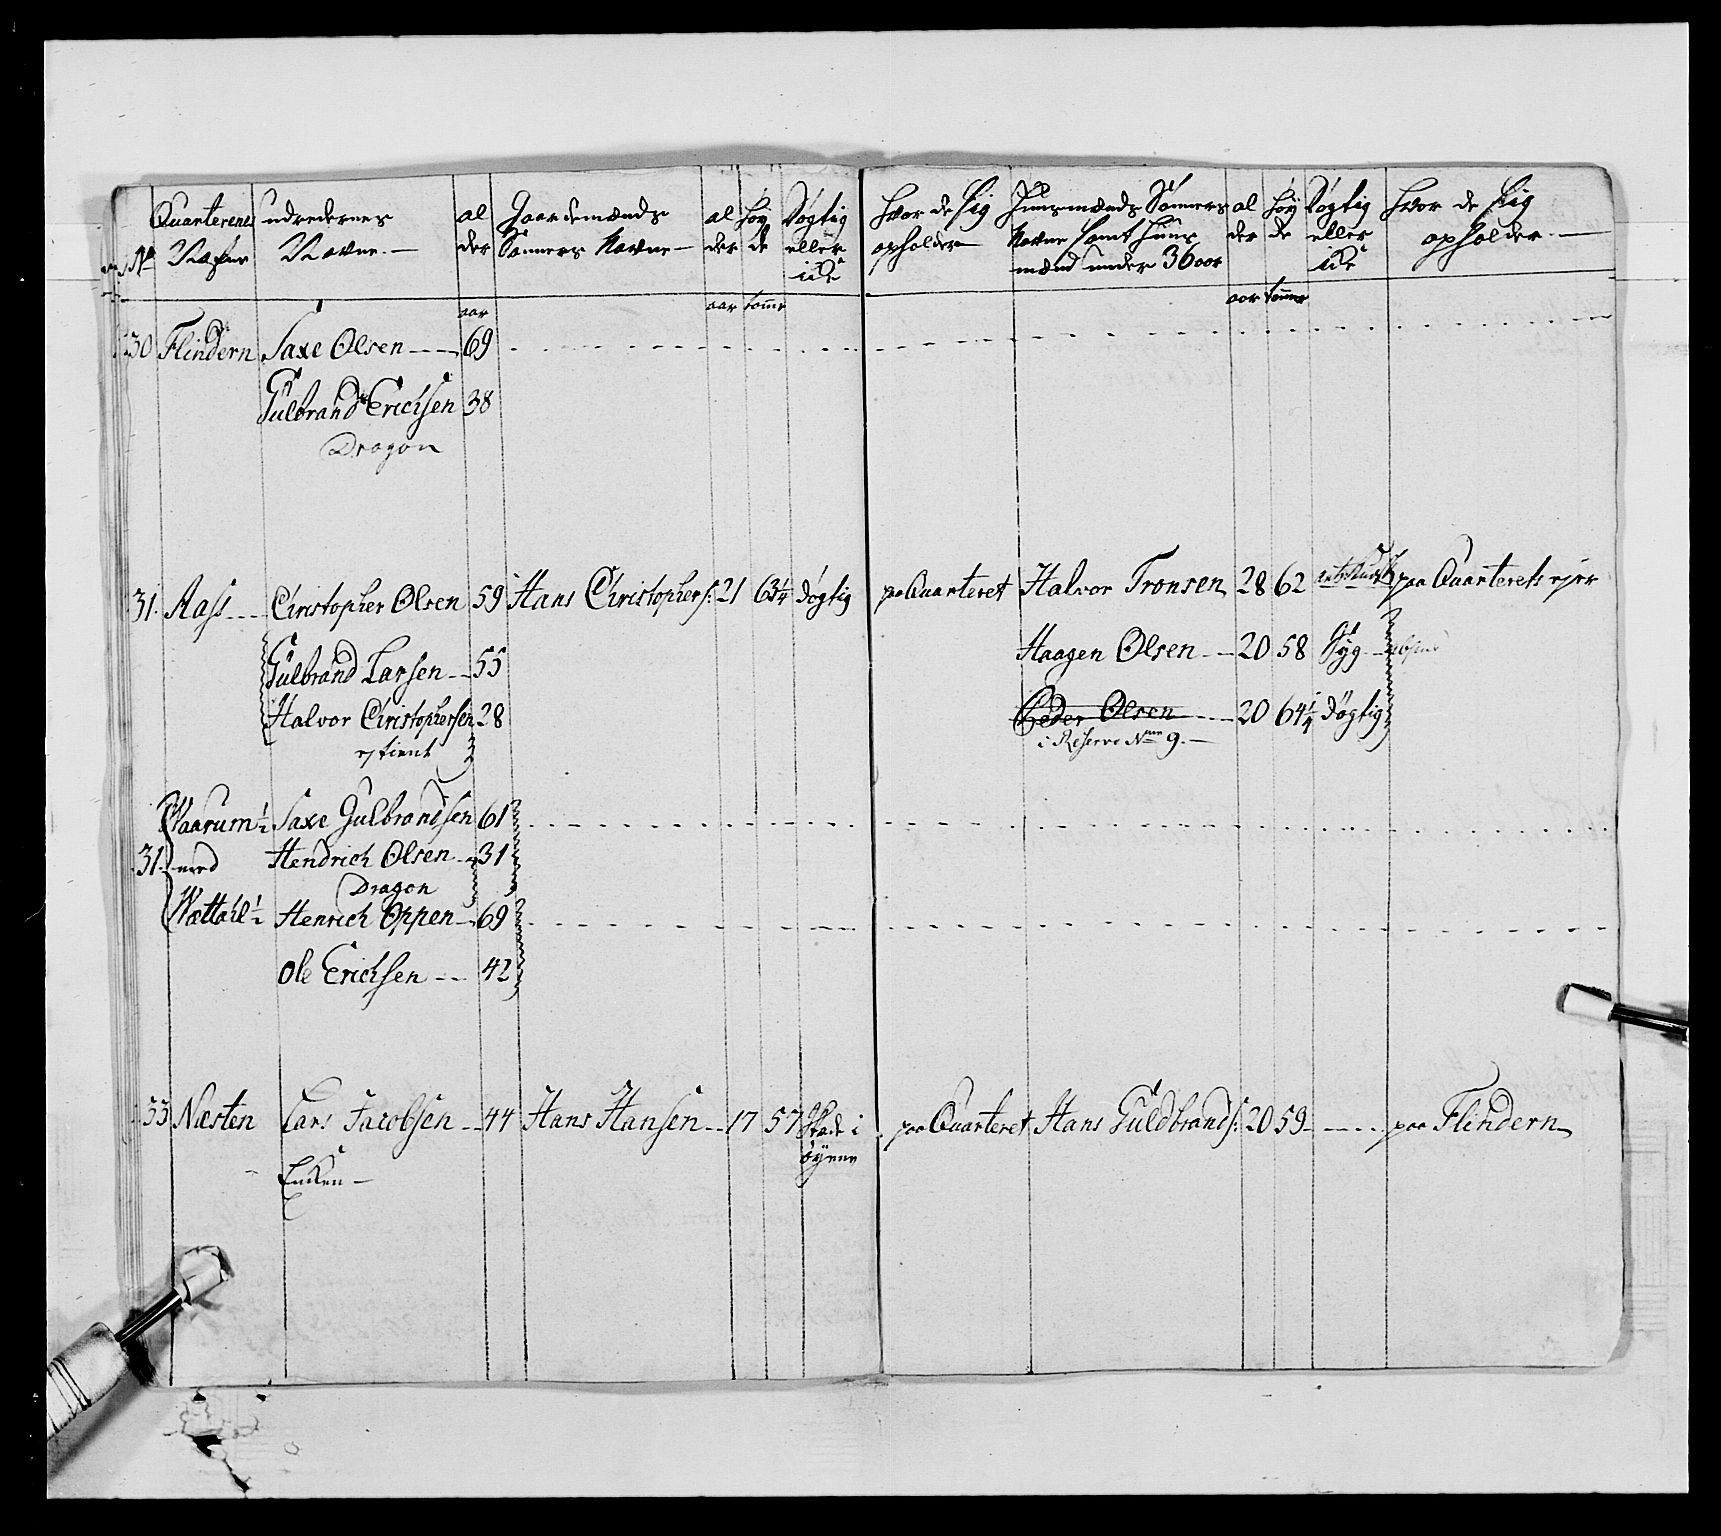 No Quarterenes Nafne
udredernes Navne.
al der
Gaardemænds Sønners Navne
al der
høy de
Døgtig eller icke
hvor de sig opholder
Huusmænds Sønners Navne samt Huus mænd under 36 aar
al der
høy de
Døgtig eller icke
hvor de sig opholder.
aar aar tomr aar tomr
30 Flindern Saxe Olsen 69
Gulbrand Erichsen 38
Dragon
31. Aass Christopher Olsen 59 Hans Christophers: 21 63¼ døgtig paa Quarteret Halvor Tronsen 28 62 paa Quarterets ejer
Gulbrand Larsen 55 Haagen Olsen 20 58 Syg
Halvor Christophersen 28 Peder Olsen 20 64¼ døgtig
i Reserve Nmr 9.
Waarum ½ Saxe Gulbrandsen 61
31. med Hendrich Olsen 31
Dragon
Wættahl ½ Henrich Oppen 69
Ole Erichsen 42
33 Næsten Lars Jacobsen 44 Hans Hansen 17 57 Skade i paa Quarteret Hans Guldbrands: 20 59 paa Flindern
Enken øynene